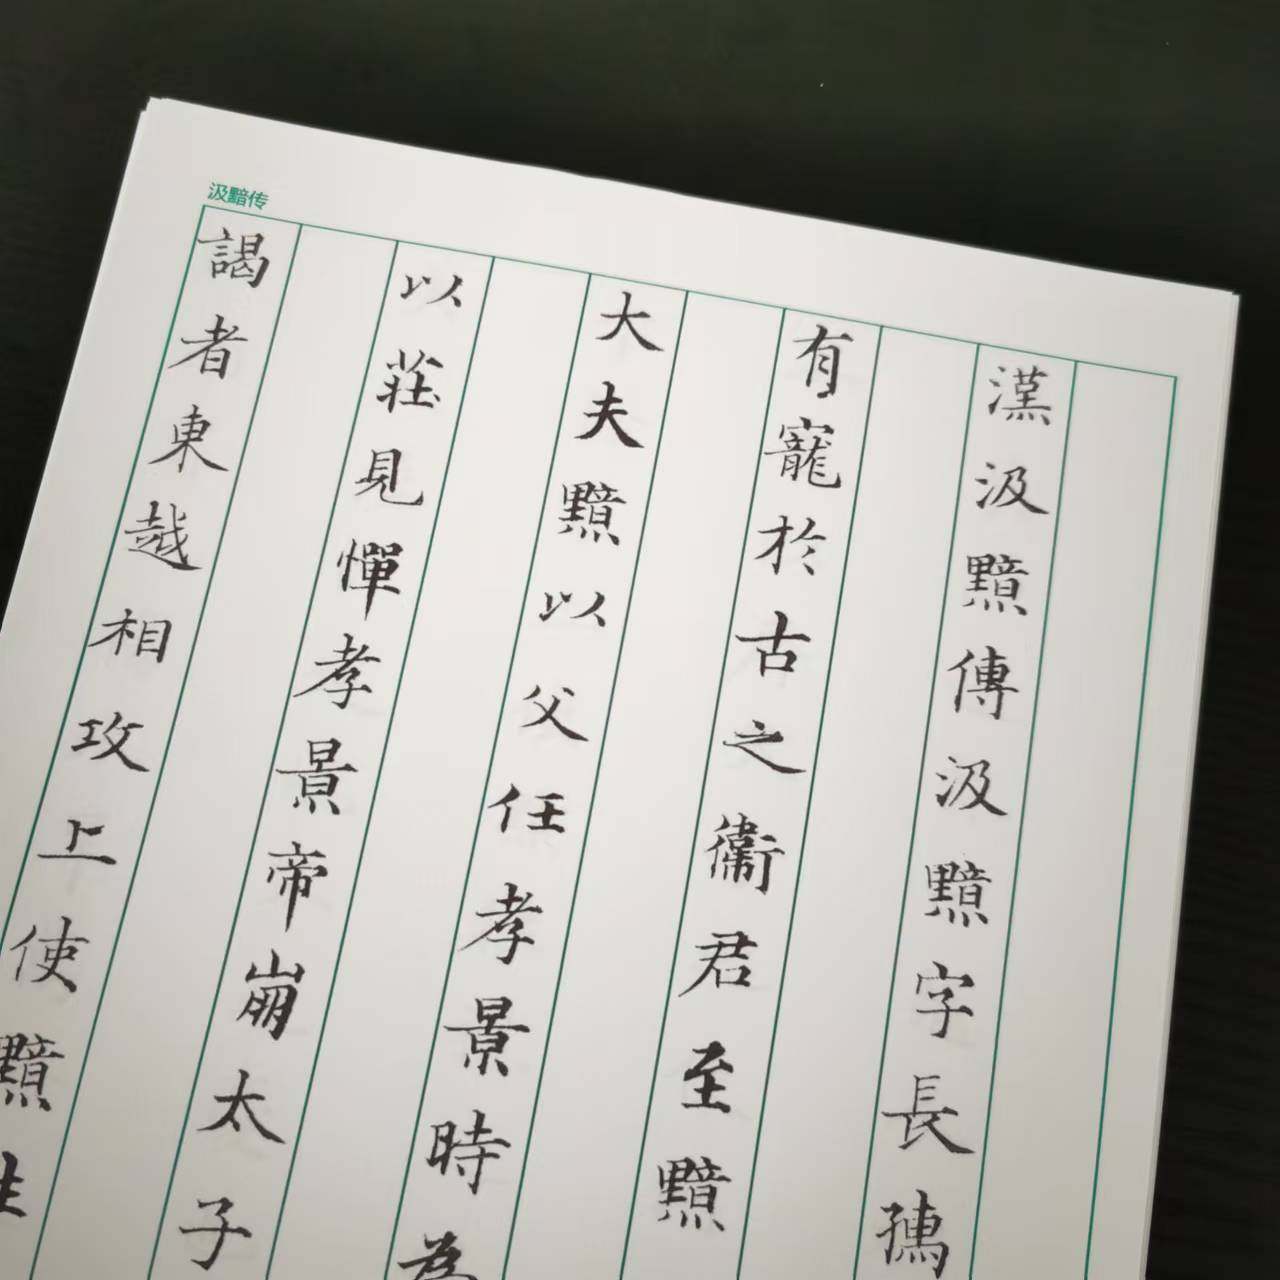 汲黯传
漢汲黯傳汲黯字長孺
有寵於古之衞君至黯
大夫黯以父任孝景時為
以莊見憚孝景帝崩太子
謁者東越相攻上使黯往